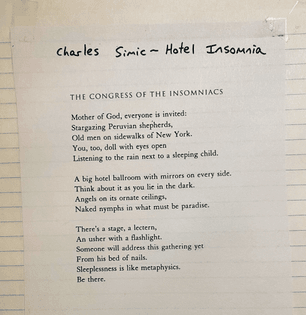 Charles Simic ~ Hotel Insomnia
THE CONGRESS OF THE INSOMNIACS
Mother of God, everyone is invited:
Stargazing Peruvian shepherds,
Old men on sidewalks of New York.
You, too, doll with eyes open
Listening to the rain next to a sleeping child.
A big hotel ballroom with mirrors on every side.
Think about it as you lie in the dark.
Angels on its ornate ceilings,
Naked nymphs in what must be paradise.
There's a stage, a lectern,
An usher with a flashlight.
Someone will address this gathering yet
From his bed of nails.
Sleeplessness is like metaphysics.
Be there.